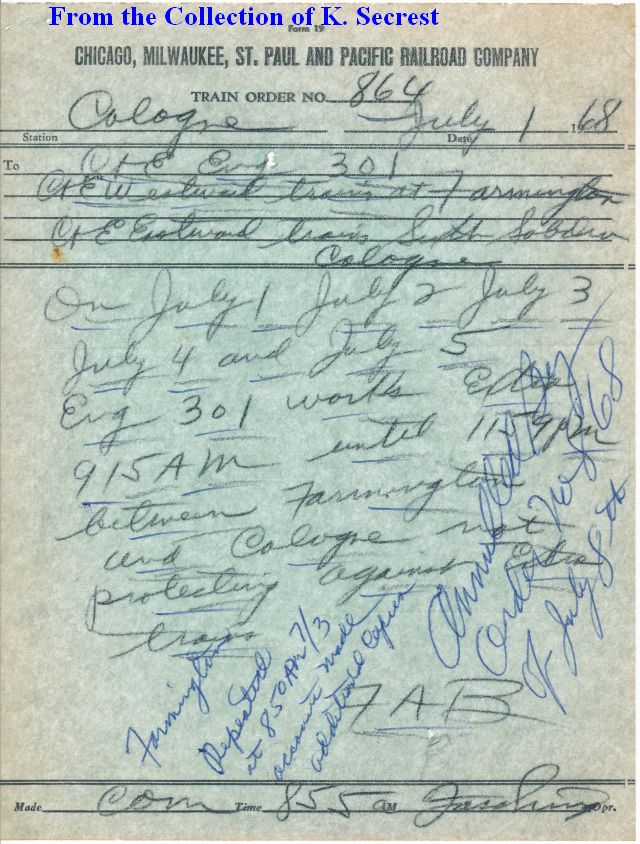 From the Collection of K. Secrest
Form 19
CHICAGO, MILWAUKEE, ST. PAUL AND PACIFIC RAILROAD COMPANY
TRAIN ORDER NO. 864
Cologne July 1 1968
Station Date
To C+E Eng 301
C+E Westward trains at Farmington
C+E Eastward trains Sixth Subdivn
Cologne
On July 1 July 2 July 3
July 4 and July 5
Eng 301 works Extra
915 AM until 1159 PM
between Farmington
and Cologne not
protecting against Extra
trains
FAB
Annulled By
Order No 68
of July 8th
Farmington
Repeated
at 850 AM 7/3
account made
additional copies
Made Com Time 855 AM Opr.